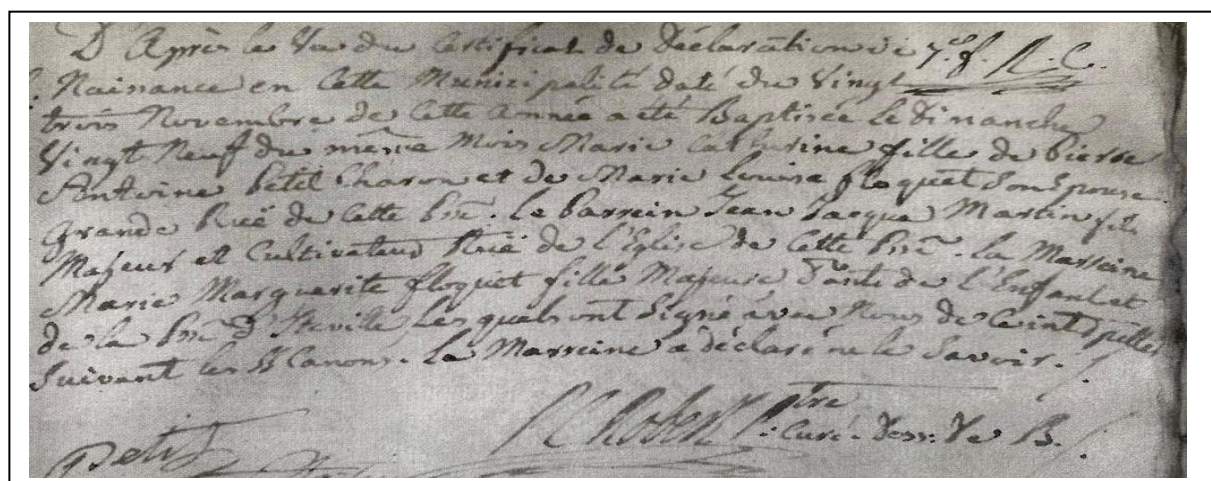 D'Après la Vue du Certificat de Déclaration de
Naissance en Cette Municipalité daté du Vingt
trois Novembre de Cette Année a été Baptisée le Dimanche
Vingt Neuf du même Mois Marie Catherine fille de Pierre
Antoine Petit Charon et de Marie Louise floquet Son Epouse
Grande Ruë de Cette . Le Parrein Jean Jacque Martin fils
Majeur et Cultivateur Ruë de l'Eglise de Cette . la Marreine
Marie Marguerite floquet fille Majeure Tante de l'Enfant et
de la Lesquels ont Signé avec Nous de Ce intérpellés
Suivant les Canons. La Marreine a déclaré ne le Savoir.
Petit Robert Curé